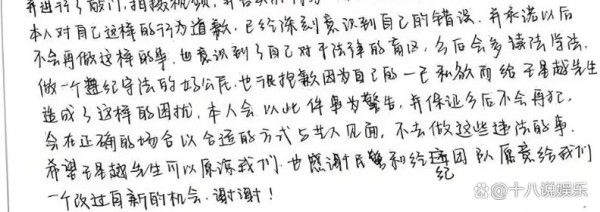 并进行了敲门、拍摄视频,并
本人对自己这样的行为道歉,已经深刻意识到自己的错误,并承诺以后
不会再做这样的事,也意识到了自己对于法律的盲区,今后会多读法学法,
做一个遵纪守法的好公民,也很抱歉因为自己的一己私欲而给王星越先生
造成了这样的困扰,本人会以此件事为警告,并保证今后不会再犯,
会在正确的场合以合适的方式与其人见面,不去做这些违法的事,
希望王星越先生可以原谅我们,也感谢民警和经纪团队愿意给我们
一个改过自新的机会,谢谢!
十八说娱乐